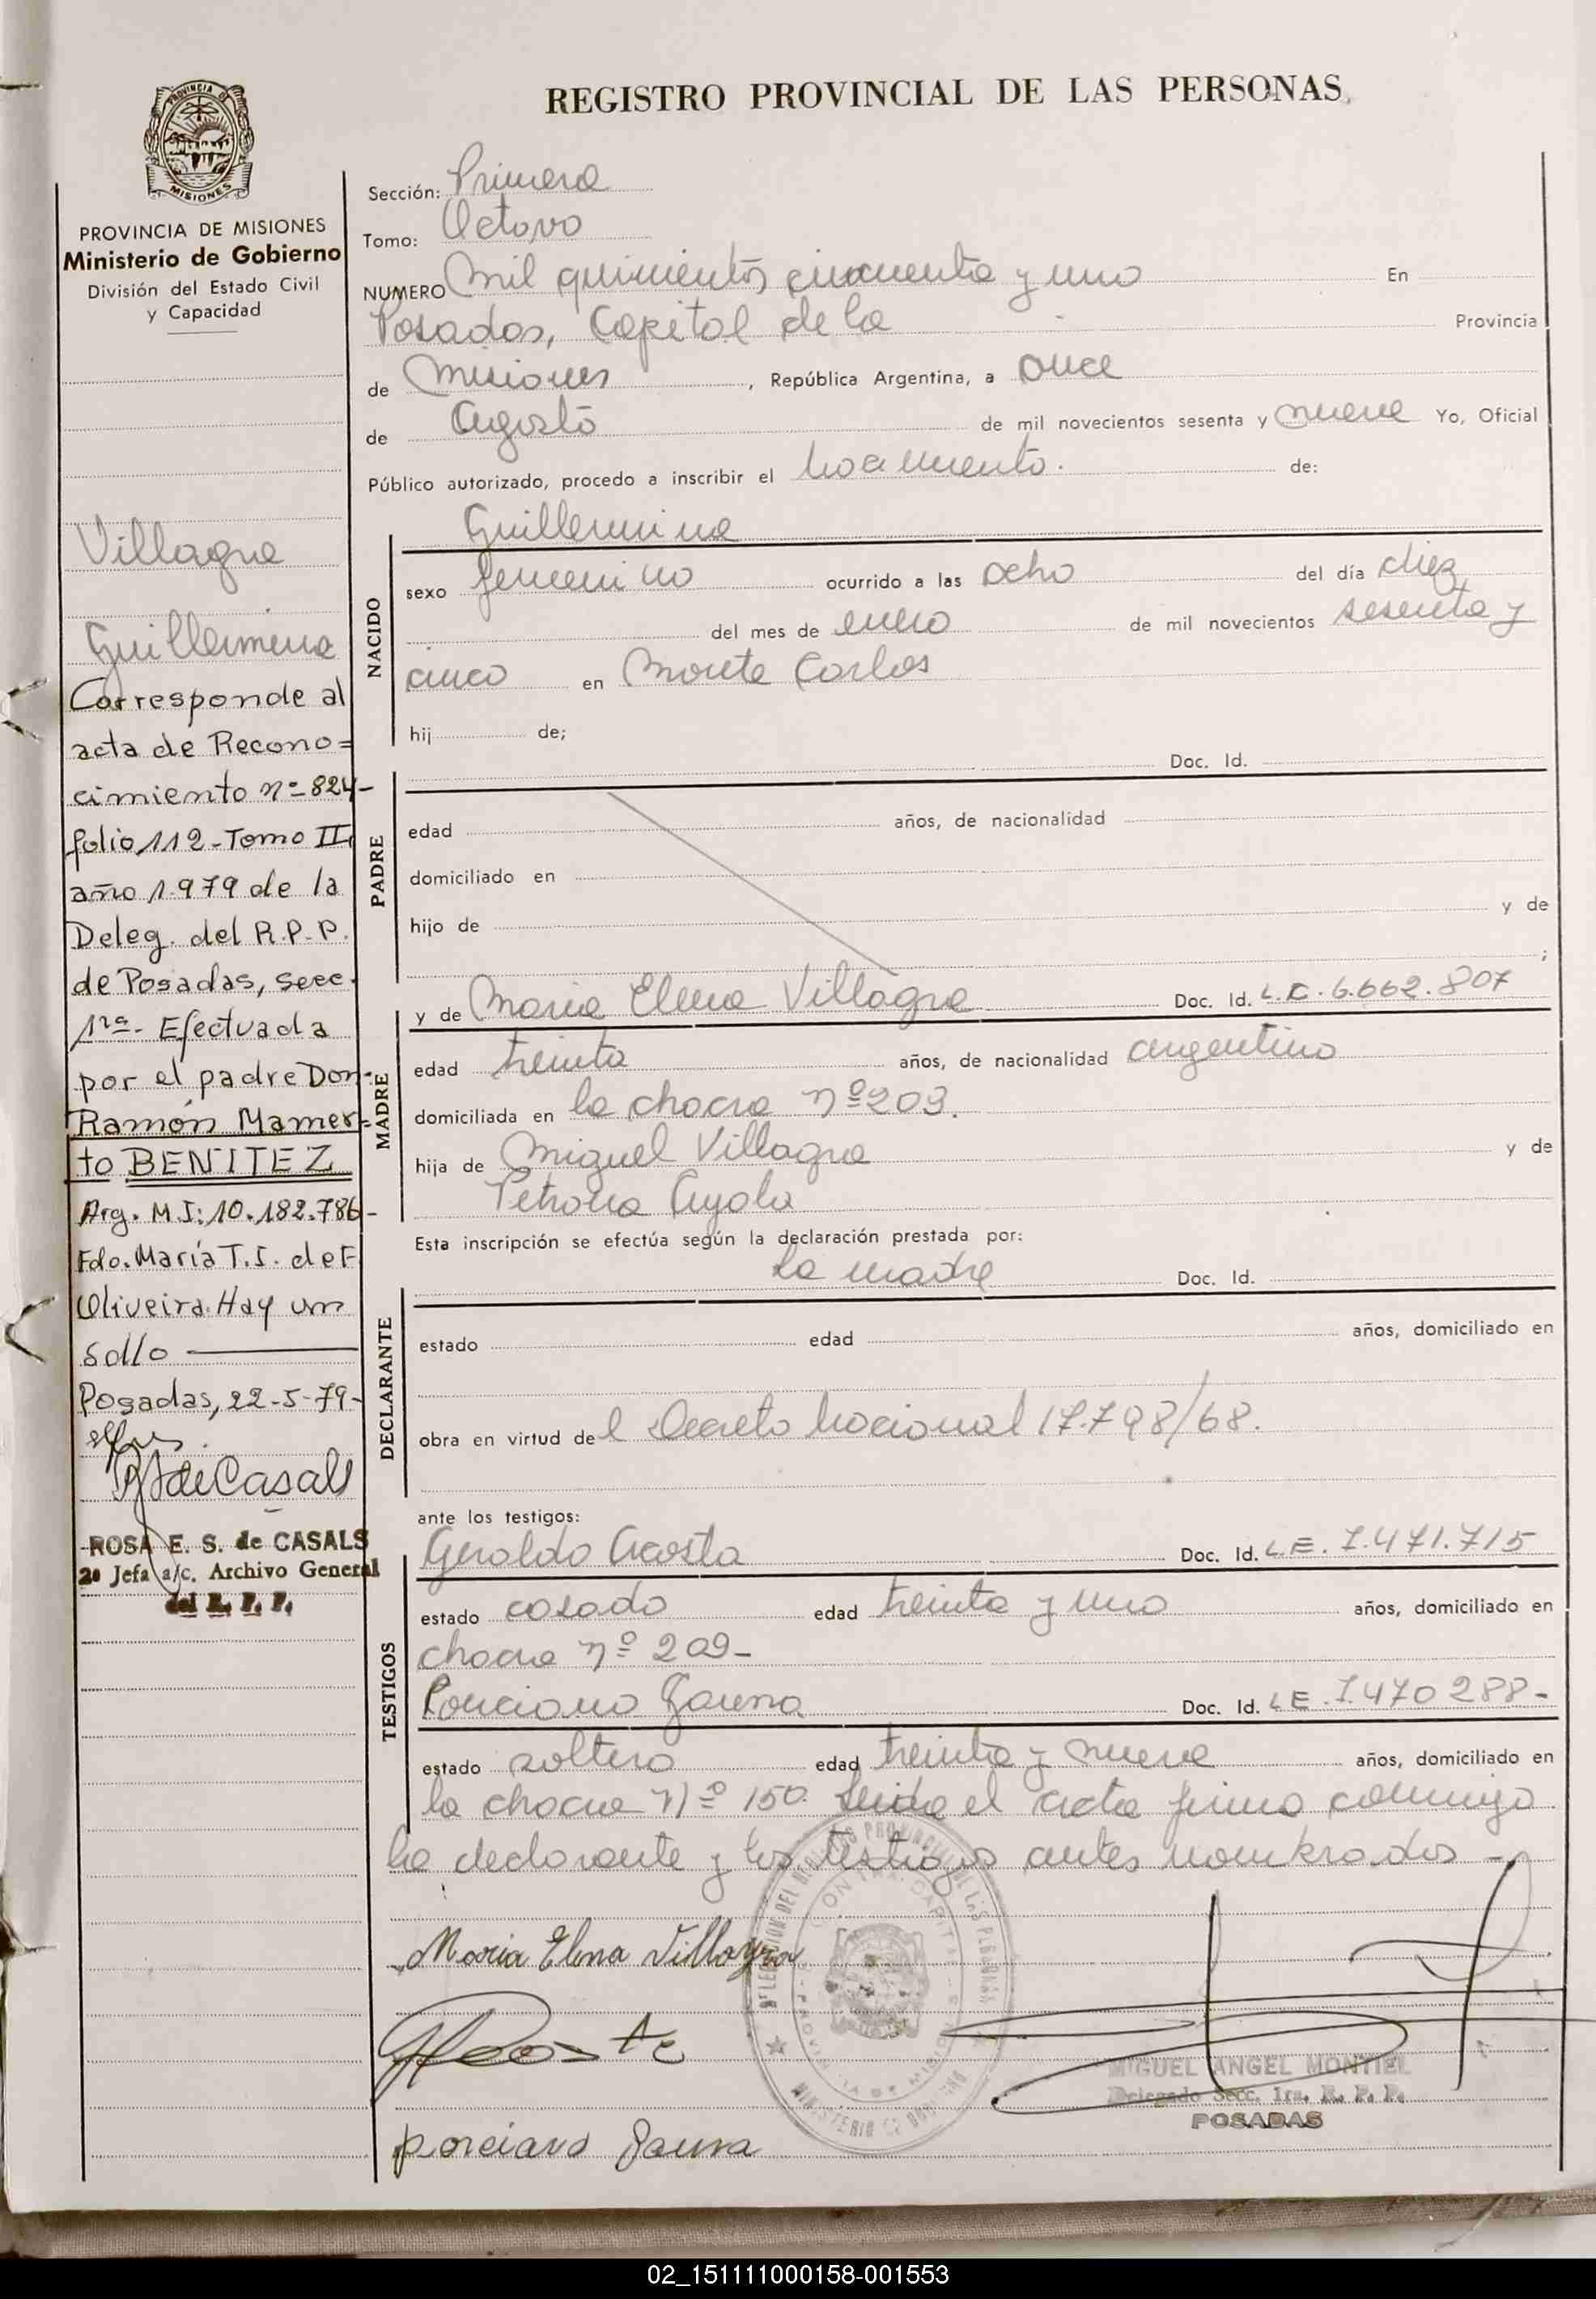 REGISTRO PROVINCIAL DE LAS PERSONAS
PROVINCIA DE
MISIONES
PROVINCIA DE MISIONES
Ministerio de Gobierno
División del Estado Civil
y Capacidad
Villagra
Guillermina
Corresponde al
acta de Recono=
cimiento nº 824-
folio 112-Tomo II
año 1.979 de la
Deleg. del R.P.P.
de Posadas, secc.
1ra- Efectuada
por el padre Don-
Ramón Mamer=
to BENITEZ
Arg. M.I: 10.182.786-
Fdo. María T.S. de F
Oliveira. Hay un
sello
Posadas, 22-5-79-
de Casals
ROSA E. S. de CASALS
2ª Jefa a/c. Archivo General
del R. P. P.
Sección: Primera
Tomo: Octavo
NUMERO Mil quinientos cincuenta y uno En
Posadas, Capital de la Provincia
de Misiones , República Argentina, a once
de Agosto de mil novecientos sesenta y nueve Yo, Oficial
Público autorizado, procedo a inscribir el nacimiento. de:
Guillermina
NACIDO
sexo femenino ocurrido a las ocho del día diez
del mes de enero de mil novecientos sesenta y
cinco en Monte Carlos
hij de;
Doc. Id.
PADRE
edad años, de nacionalidad
domiciliado en
hijo de y de
;
y de Maria Elena Villagra Doc. Id. L.C. 6.662.807
MADRE
edad treinta años, de nacionalidad argentino
domiciliada en la chacra nº 209.
hija de Miguel Villagra y de
Petrona Ayala
Esta inscripción se efectúa según la declaración prestada por:
la madre Doc. Id.
DECLARANTE
estado edad años, domiciliado en
obra en virtud del Decreto Nacional 17.798/68.
ante los testigos:
Geraldo Acosta Doc. Id. L.E. 7.471.715
TESTIGOS
estado casado edad treinta y uno años, domiciliado en
chacra nº 209-
Ponciano Gauna Doc. Id. L.E. 7.470 288-
estado soltero edad treinta y nueve años, domiciliado en
la chacra Nº 150. Leida el acta firma conmigo
la declarante y los testigos antes nombrados -
Maria Elena Villagra
GAcosta
ponciano Gauna
MINISTERIO DE GOBIERNO
MIGUEL ANGEL MONTIEL
Delegado Secc. 1ra. R. P. P.
POSADAS
02_151111000158-001553